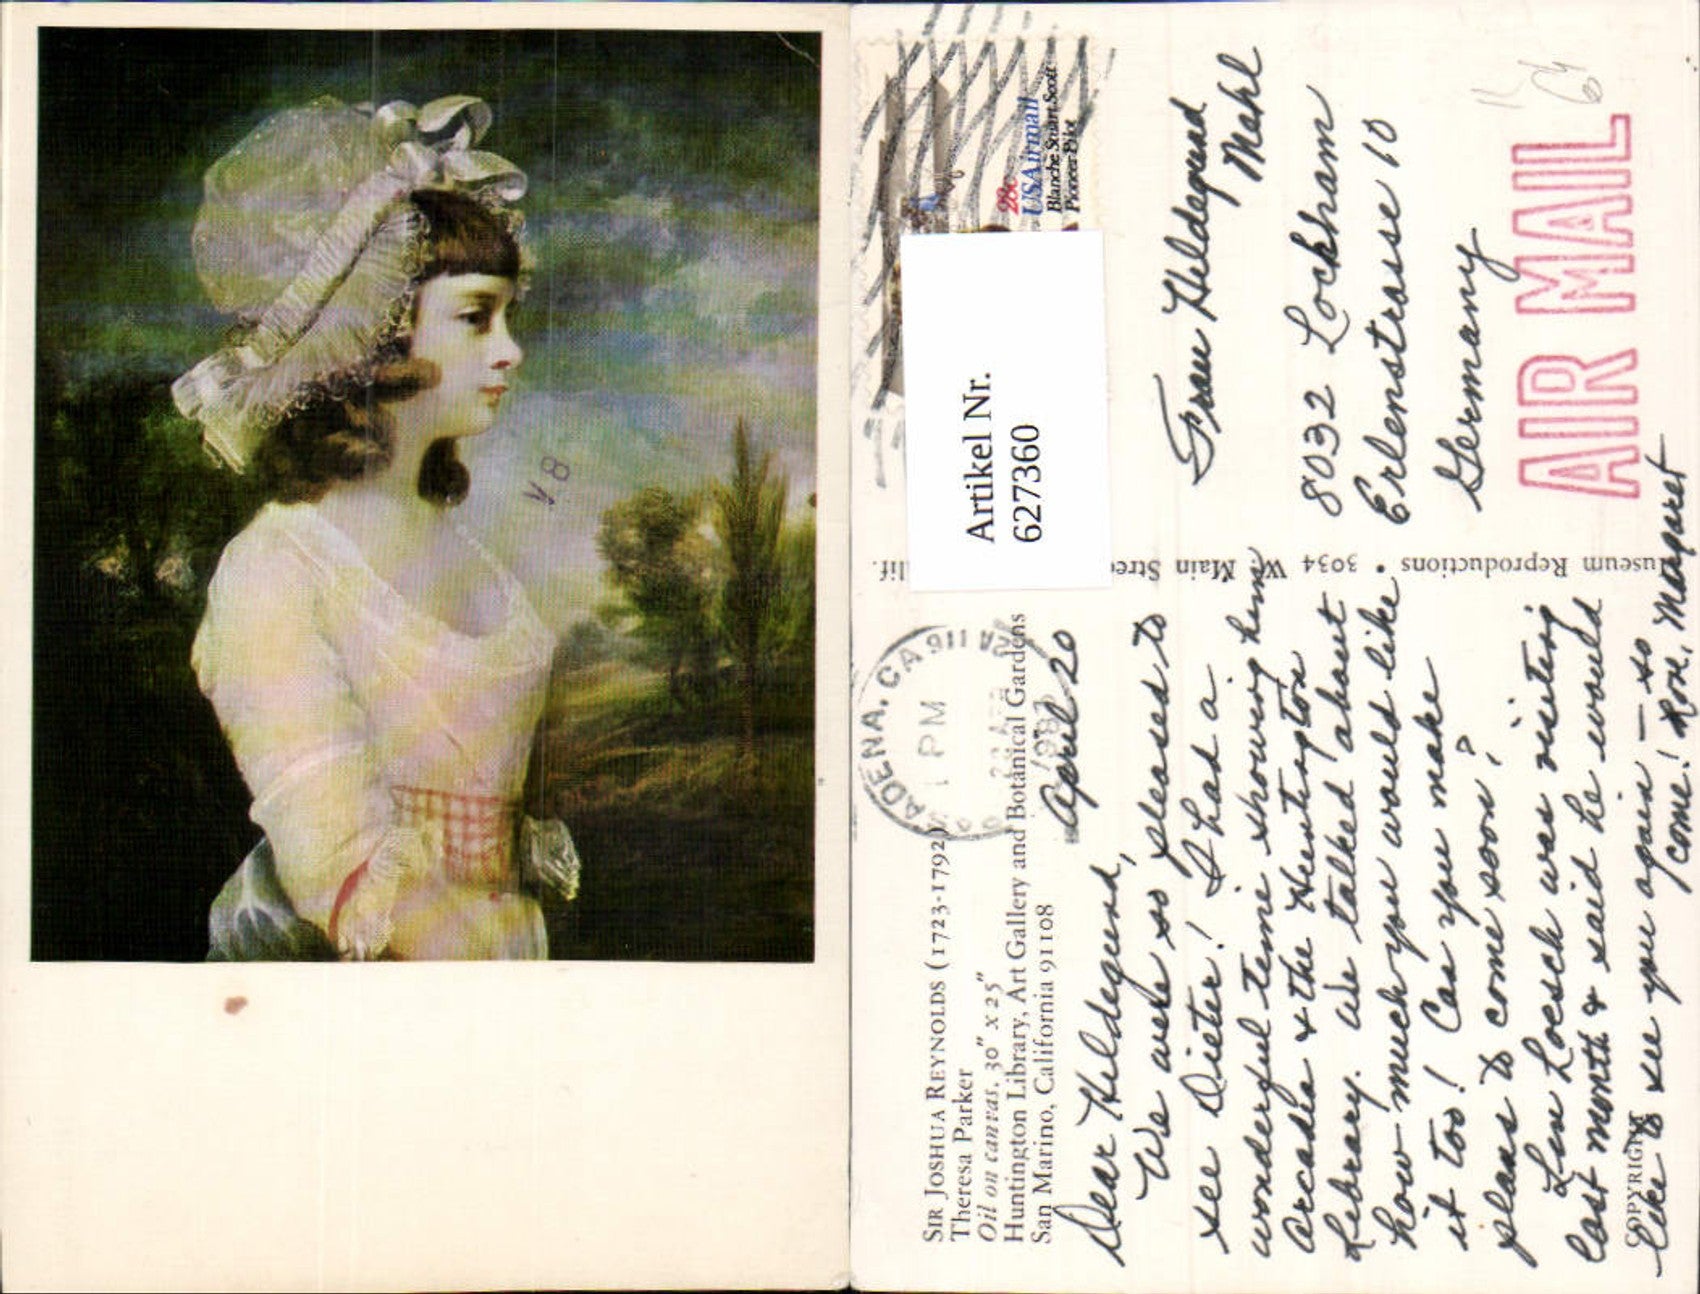 y 8
SIR JOSHUA REYNOLDS (1723-1792)
Theresa Parker
Oil on canvas. 30" x 25"
Huntington Library, Art Gallery and Botanical Gardens
San Marino, California 91108
April 20
Dear Hildegund,
We were so pleased to
see Dieter! I had a
wonderful time showing him
Arcadia & the Huntington
Library. We talked about
how much you would like
it too! Can you make
plans to come soon?
Lew Loesch was visiting
last month & said he would
like to see you again — so
come! Love, Margaret
COPYRIGHT
ADENA, CA 911
1 PM
22 APR
Museum Reproductions • 3034 W. Main Stree
lif.
28c
USAirmail
Blanche Stuart Scott
Pioneer Pilot
Artikel Nr.
6273360
Frau Hildegund
Mehl
8032 Lochham
Erlenstrasse 10
Germany
AIR MAIL